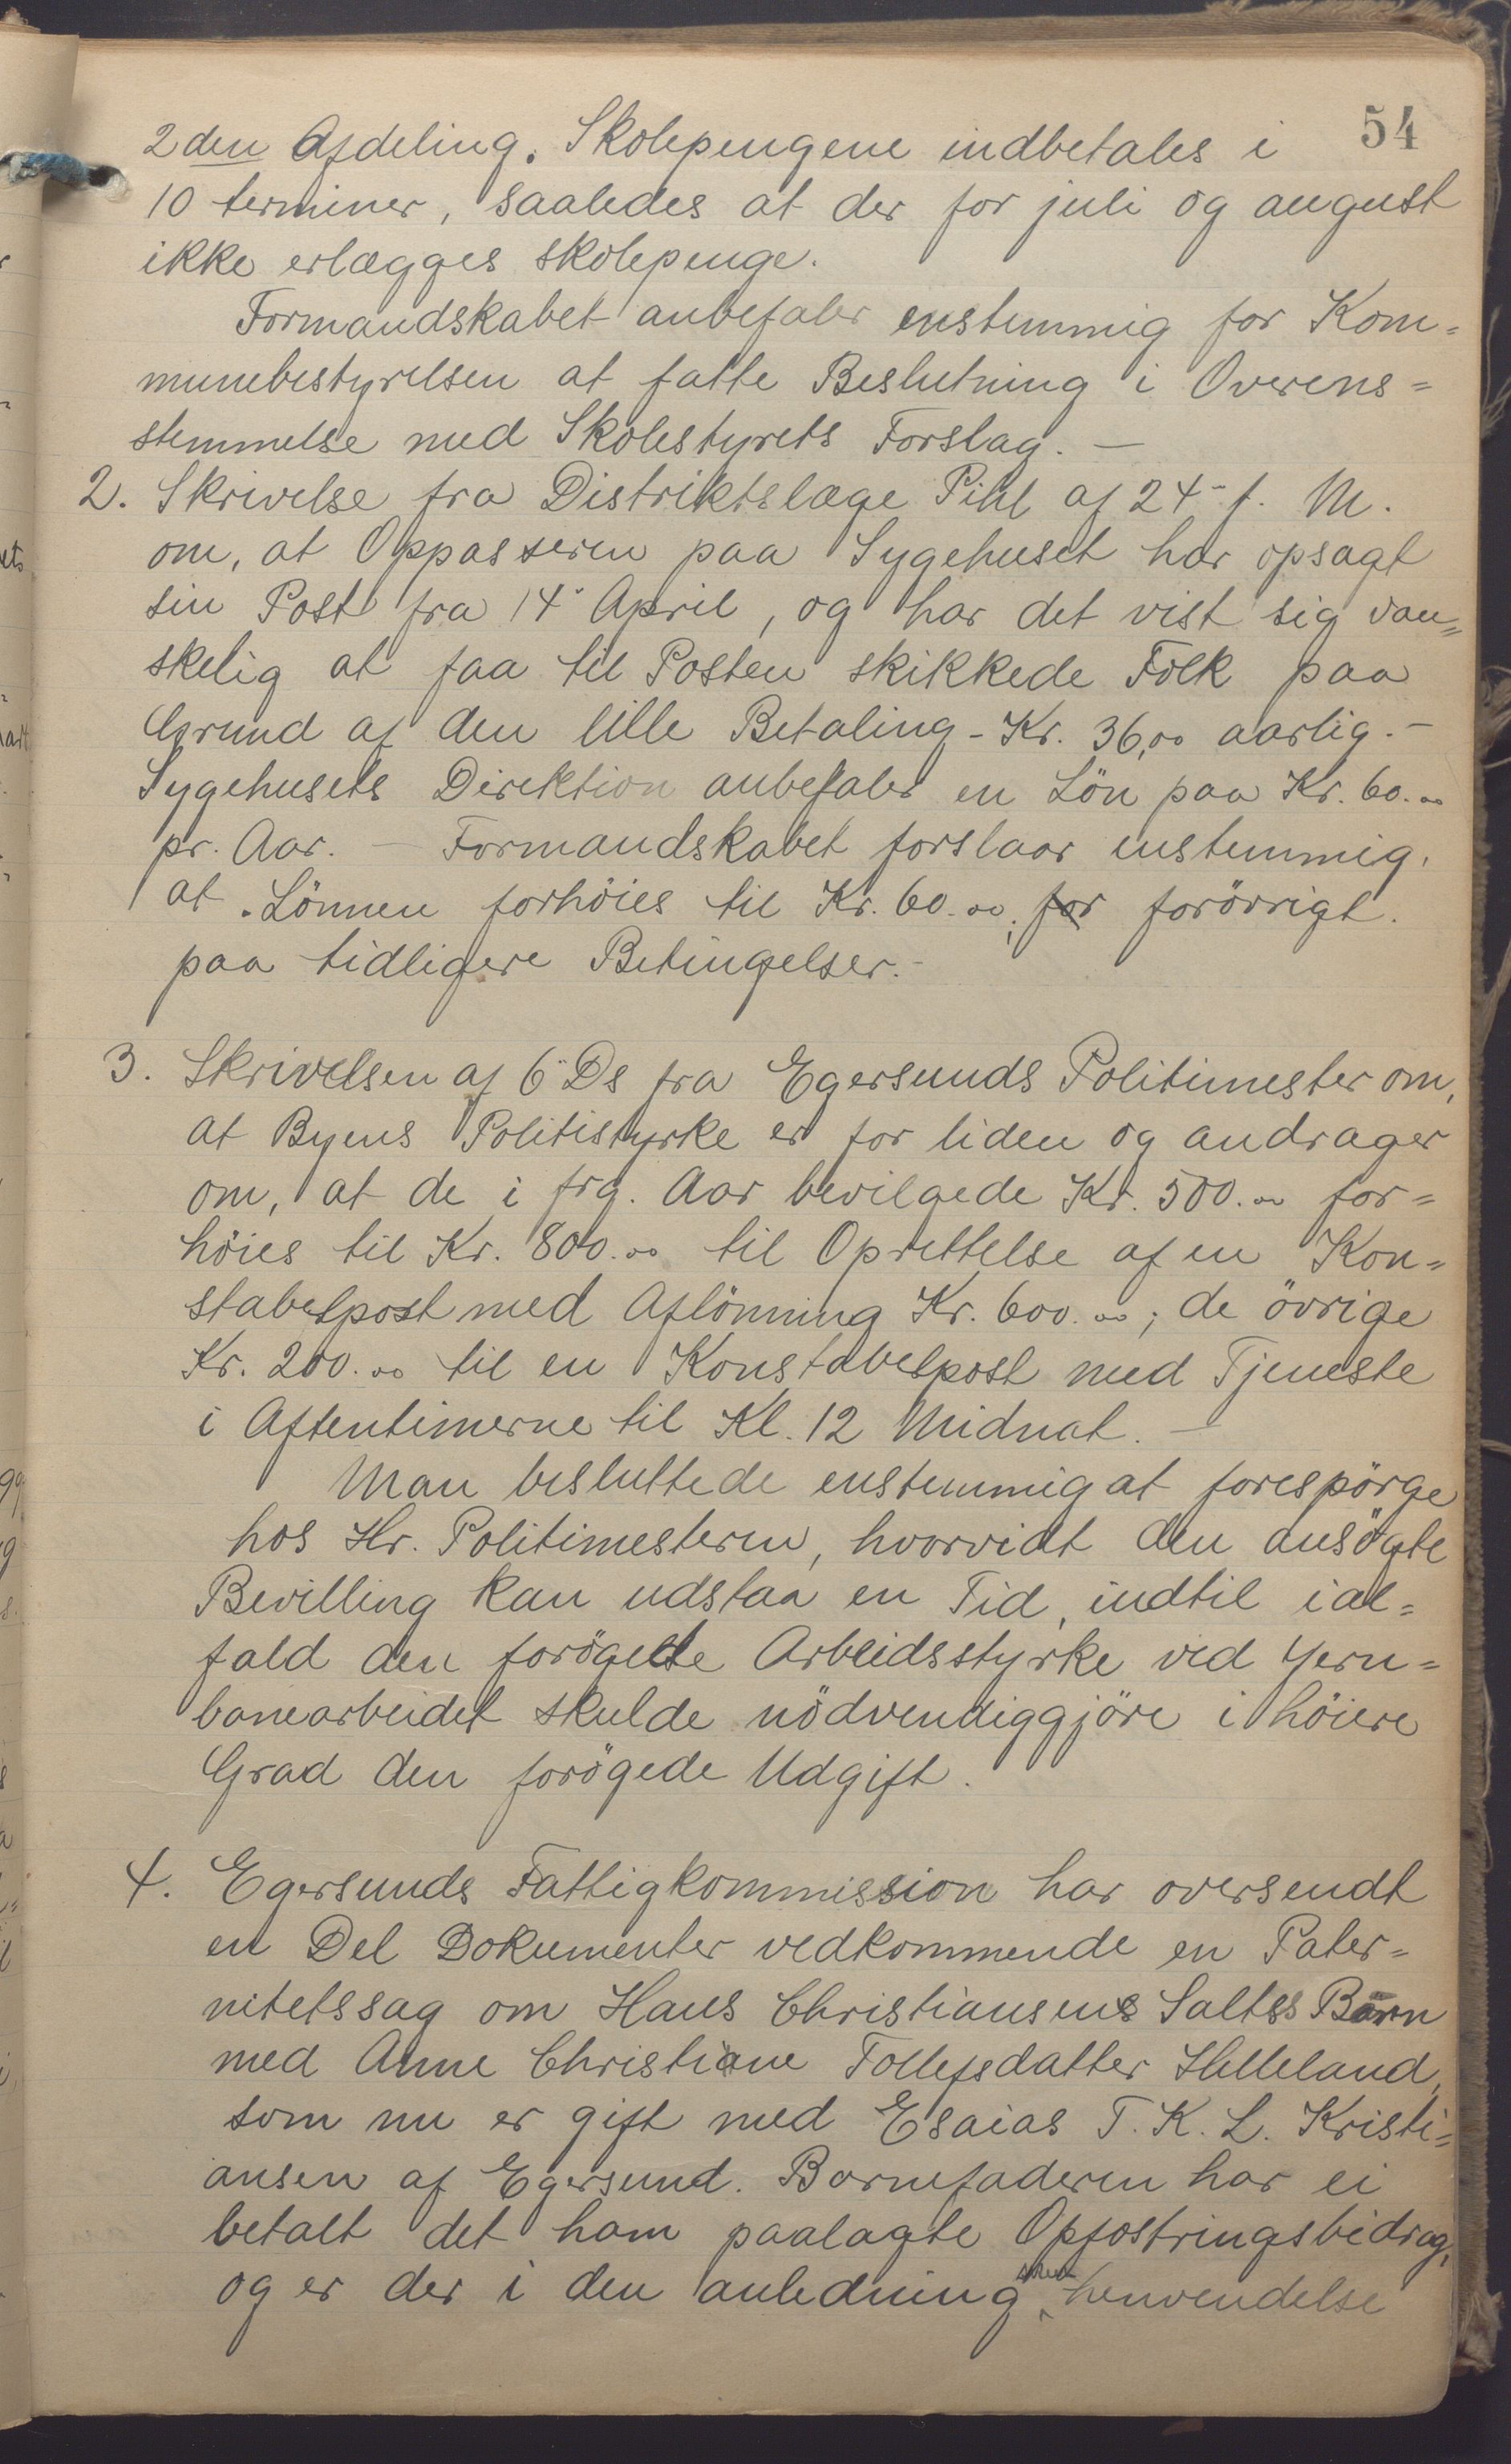 54
2den Afdeling. Skolepengene indbetales i
10 terminer, saaledes at der for juli og august
ikke erlægges skolepenge.
Formandskabet anbefaler enstemmig for Kom=
munebestyrelsen at fatte Beslutning i Overens=
stemmelse med Skolestyrets Forslag. —
2. Skrivelse fra Distriktslæge Pihl af 24 f. M.
om, at Oppasseren paa Sygehuset har opsagt
sin Post fra 14 April, og har det vist sig van=
skelig at faa til Posten skikkede Folk paa
Grund af den lille Betaling - Kr. 36,00 aarlig. —
Sygehusets Direktion anbefaler en Lön paa Kr. 60.00
pr. Aar. — Formandskabet forslaar enstemmig,
at Lönnen forhöies til Kr. 60.00, for forövrigt.
paa tidligere Betingelser. -
3. Skrivelsen af 6 Ds fra Egersunds Politimester om,
at Byens Politistyrke er for liden og andrager
om, at de i frg. Aar bevilgede Kr. 500.00 for=
höies til Kr. 800.00 til Oprettelse af en Kon=
stabelpost med Aflönning Kr. 600.00; de övrige
Kr. 200.00 til en Konstabelpost med Tjeneste
i Aftentimerne til Kl. 12 Midnat. —
Man besluttede enstemmig at forespörge
hos Hr. Politimesteren, hvorvidt den ansögte
Bevilling kan udstaa en Tid, indtil ial=
fald den forögede Arbeidsstyrke ved Jern=
banearbeidet skulde nödvendiggjöre i höiere
Grad den forögede Udgift.
4. Egersunds Fattigkommission har oversendt
en Del Dokumenter vedkommende en Pater=
nitetssag om Hans Christiansens Saltes Barn
med Anne Christiane Tollefsdatter Helleland,
som nu er gift med Esaias T. K. L. Kristi=
ansen af Egersund. Barnefaderen har ei
betalt det ham paalagte Opfostringsbidrag,
og er der i den anledning henvendelse